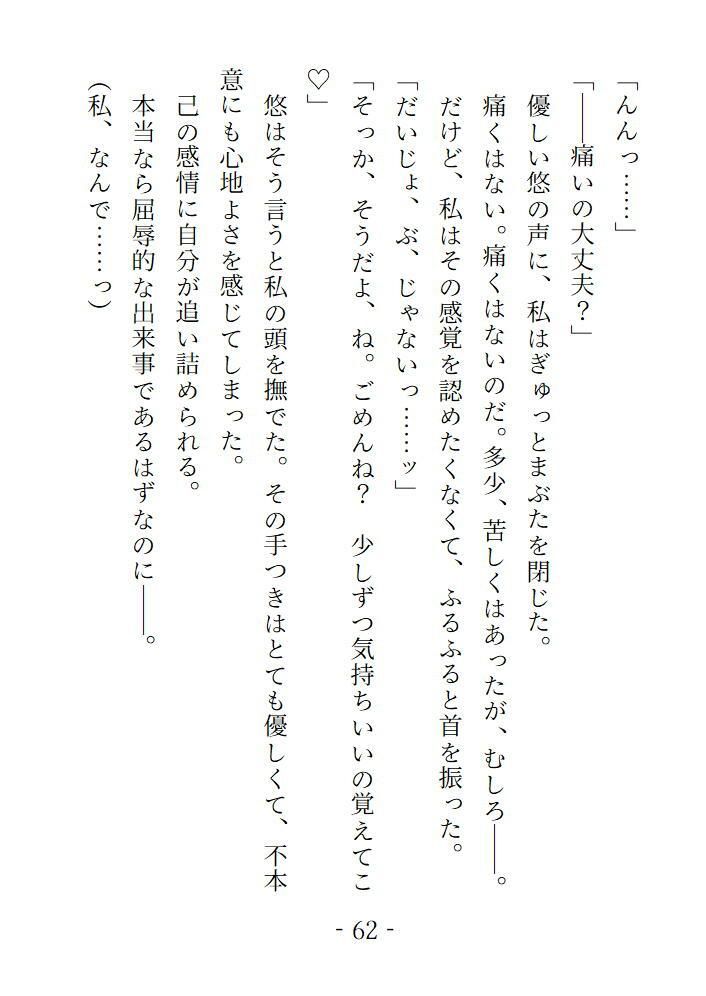 「んんっ……」
「――痛いの大丈夫？」
優しい悠の声に、私はぎゅっとまぶたを閉じた。
痛くはない。痛くはないのだ。多少、苦しくはあったが、むしろ――。
だけど、私はその感覚を認めたくなくて、ふるふると首を振った。
「だいじょ、ぶ、じゃないっ……ッ」
「そっか、そうだよ、ね。ごめんね？　少しずつ気持ちいいの覚えてこ
♡」
悠はそう言うと私の頭を撫でた。その手つきはとても優しくて、不本
意にも心地よさを感じてしまった。
己の感情に自分が追い詰められる。
本当なら屈辱的な出来事であるはずなのに――。
（私、なんで……っ）
- 62 -